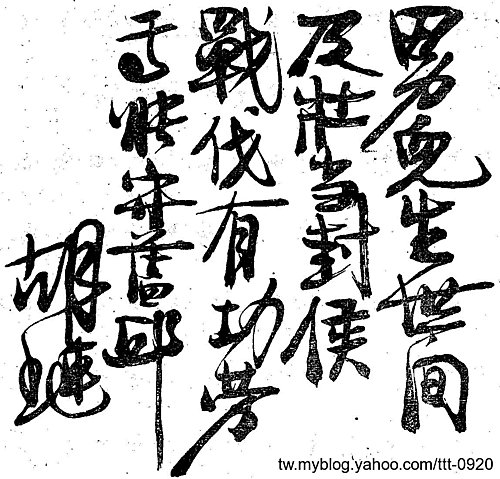 男兒生世間
及壯当封侯
戰伐有功勞
焉能守舊邱
胡璉
tw.myblog.yahoo.com/ttt-0920